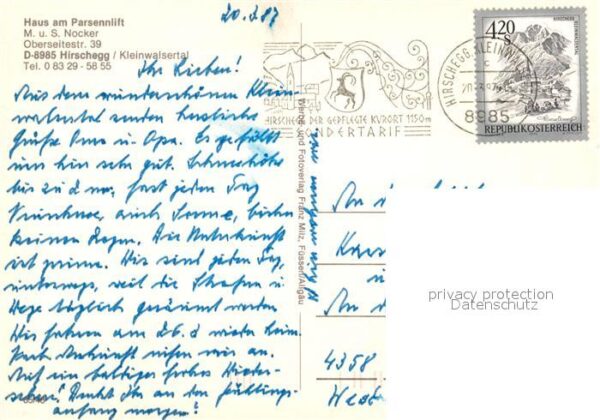 20.3.87
Haus am Parsennlift
M. u. S. Nocker
Oberseitestr. 39
D-8985 Hirschegg / Kleinwalsertal
Tel. 0 83 29 - 58 55
Ihr Lieben!
Aus dem wunderschönen Klein-
walsertal senden herzliche
Grüße Oma u. Opa. Es gefällt
uns hier sehr gut. Schneehöhe
bis zu 2 m, fast jeden Tag
Neuschnee, auch Sonne, bisher
keinen Regen. Die Unterkunft
ist prima. Wir sind jeden Tag
unterwegs, weil die Straßen u.
Wege täglich geräumt werden
Wir fahren am 26.3 wieder heim.
Nach Ankunft rufen wir an.
Auf ein baldiges frohes Wieder-
sehen! Denkt Ihr an den Frühlings-
anfang morgen?
HIRSCHEGG DER GEPFLEGTE KURORT 1150m
SONDERTARIF
HIRSCHEGG, KLEINW
8985
4.20
S
HIRSCHEGG
REPUBLIK ÖSTERREICH
und Fotoverlag Franz Milz, Füssen/Allgäu
An
An
4358
privacy protection
Datenschutz